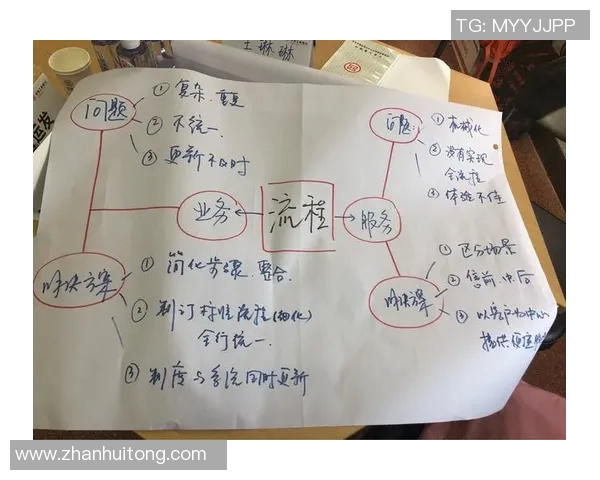 TG: MYYJJPP
王琳琳
问题
① 复杂、重复
② 不统一
③ 更新不及时
业务
流程
服务
问题:
① 机械化
② 没有实现
全流程
③ 体验不佳
解决方案
① 简化步骤、整合
② 制订标准流程(细化)
全行统一
③ 制度与系统同时更新
解决方案
① 区分场景
② 售前、中、后
③ 以客户为中心
提供便逞服
www.zhanhuitong.com